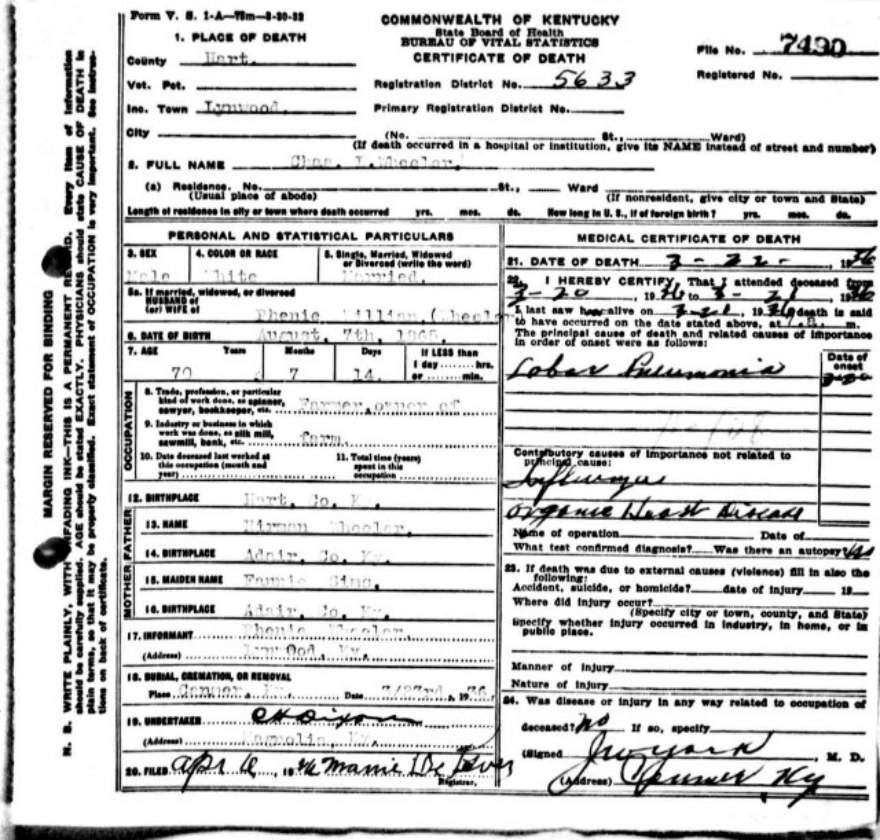 Form V. S. 1-A—75m—3-30-32
COMMONWEALTH OF KENTUCKY
State Board of Health
BUREAU OF VITAL STATISTICS
CERTIFICATE OF DEATH
File No. 7490
Registered No.
1. PLACE OF DEATH
County Hart.
Vot. Pct.
Registration District No. 5633
Inc. Town Lynwood.
Primary Registration District No.
City (No. St., Ward)
(If death occurred in a hospital or institution, give its NAME instead of street and number)
2. FULL NAME Chas. L. Wheeler.
(a) Residence. No. St., Ward
(Usual place of abode) (If nonresident, give city or town and State)
Length of residence in city or town where death occurred yrs. mos. ds. How long in U. S., if of foreign birth? yrs. mos. ds.
PERSONAL AND STATISTICAL PARTICULARS
3. SEX 4. COLOR OR RACE 5. Single, Married, Widowed or Divorced (write the word)
Male White Married.
5a. If married, widowed, or divorced
HUSBAND of
(or) WIFE of Rhenie (Wheeler
6. DATE OF BIRTH August, 7th, 1865.
7. AGE Years Months Days If LESS than
1 day hrs.
or min.
70 7 14.
8. Trade, profession, or particular
kind of work done, as spinner,
sawyer, bookkeeper, etc. Farmer, owner of
9. Industry or business in which
work was done, as silk mill,
sawmill, bank, etc. farm.
10. Date deceased last worked at
this occupation (month and
year)
11. Total time (years)
spent in this
occupation
OCCUPATION
12. BIRTHPLACE Hart. Co. Ky.
13. NAME Hirman Wheeler.
14. BIRTHPLACE Adair, Co. Ky.
FATHER
15. MAIDEN NAME Fannie Sims.
16. BIRTHPLACE Adair, Co. Ky.
MOTHER
17. INFORMANT Rhenie Wheeler.
(Address) Lynwood, Ky.
18. BURIAL, CREMATION, OR REMOVAL
Place Canmer, Ky. Date 3/23rd, 1936.
19. UNDERTAKER C H Dixon
(Address) Magnolia, Ky.
20. FILED Apr 6, 1936 Mamie
Registrar.
MEDICAL CERTIFICATE OF DEATH
21. DATE OF DEATH 3-22-, 1936
22. I HEREBY CERTIFY, That I attended deceased from
3-20, 1936 to 3-21, 1936
I last saw h alive on 3-21, 1936, death is said
to have occurred on the date stated above, at m.
The principal cause of death and related causes of importance
in order of onset were as follows:
Date of
onset
Lobar Pneumonia 3-20
108
Contributory causes of importance not related to
principal cause:
Influenza
Organic Heart Disease
Name of operation Date of
What test confirmed diagnosis? Was there an autopsy?
23. If death was due to external causes (violence) fill in also the
following:
Accident, suicide, or homicide? date of injury 19
Where did injury occur?
(Specify city or town, county, and State)
Specify whether injury occurred in industry, in home, or in
public place.
Manner of injury
Nature of injury
24. Was disease or injury in any way related to occupation of
deceased? No If so, specify
(Signed , M. D.
(Address) Canmer Ky
MARGIN RESERVED FOR BINDING
N. B. WRITE PLAINLY, WITH UNFADING INK—THIS IS A PERMANENT RECORD. Every item of information
should be carefully supplied. AGE should be stated EXACTLY. PHYSICIANS should state CAUSE OF DEATH in
plain terms, so that it may be properly classified. Exact statement of OCCUPATION is very important. See instruc-
tions on back of certificate.